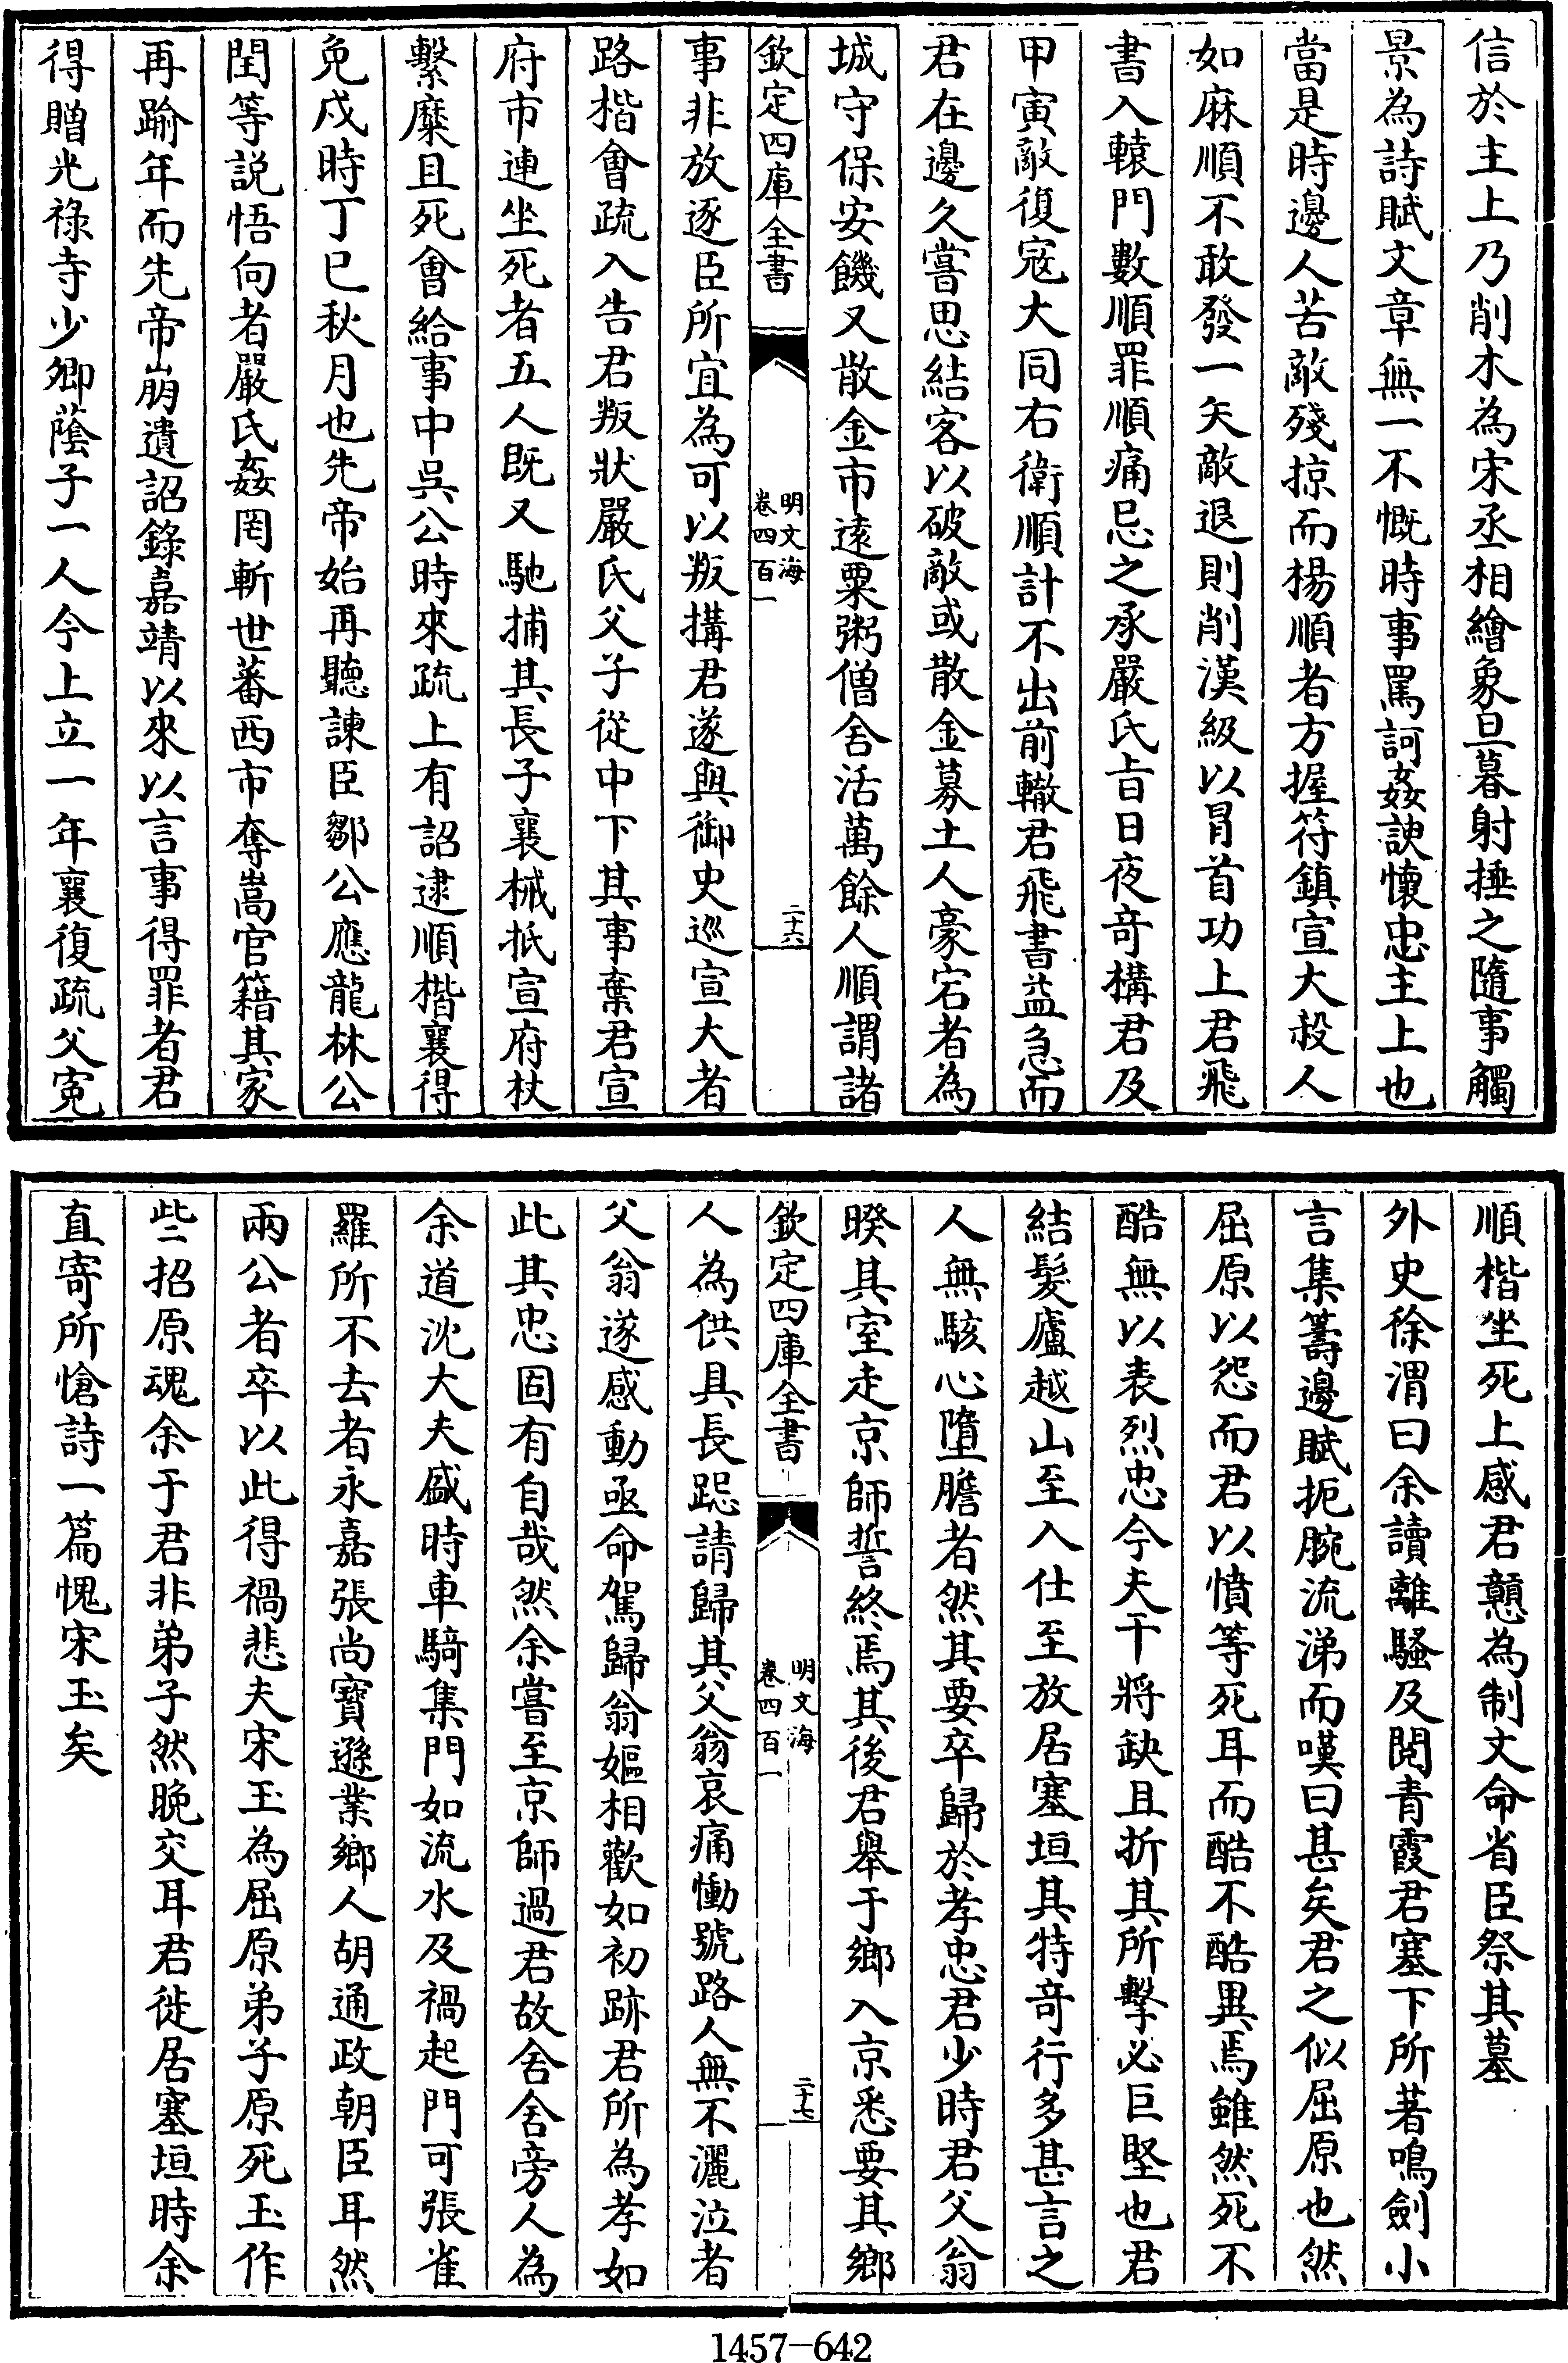 信於主上乃削木為宋丞相繪象旦暮射捶之隨事觸
景為詩賦文章無一不慨時事罵訶姦諛懷忠主上也
當是時邊人苦敵殘掠而楊順者方握符鎮宣大殺人
如麻順不敢發一矢敵退則削漢級以冐首功上君飛
書入轅門數順罪順痛忌之承嚴氏㫖日夜竒構君及
甲寅敵復寇大同右衛順計不出前轍君飛書益急而
君在邊久嘗思結客以破敵或散金募土人豪宕者為
城守保安饑又散金市遠粟粥僧舍活萬餘人順謂諸
欽定四庫全書
明文海
卷四百一
二十六
事非放逐臣所宜為可以叛搆君遂與御史巡宣大者
路楷會疏入告君叛狀嚴氏父子從中下其事棄君宣
府市連坐死者五人既又馳捕其長子襄械抵宣府杖
繫糜且死會給事中吳公時來疏上有詔逮順楷襄得
免戍時丁巳秋月也先帝始再聽諫臣鄒公應龍林公
閏等説悟向者嚴氏姦罔斬世蕃西市奪嵩官籍其家
再踰年而先帝崩遺詔錄嘉靖以來以言事得罪者君
得贈光祿寺少卿蔭子一人今上立一年襄復疏父寃
順楷坐死上感君戇為制文命省臣祭其墓
外史徐渭曰余讀離騷及閱青霞君塞下所著鳴劍小
言集籌邊賦扼腕流涕而嘆曰甚矣君之似屈原也然
屈原以怨而君以憤等死耳而酷不酷異焉雖然死不
酷無以表烈忠今夫干將缺且折其所擊必巨堅也君
結髮廬越山至入仕至放居塞垣其特竒行多甚言之
人無駭心墮膽者然其要卒歸於孝忠君少時君父翁
暌其室走京師誓終焉其後君舉于鄉入京悉要其鄉
欽定四庫全書
明文海
卷四百一
二十七
人為供具長跽請歸其父翁哀痛慟號路人無不灑泣者
父翁遂感動亟命駕歸翁嫗相歡如初跡君所為孝如
此其忠固有自哉然余嘗至京師過君故舍舍旁人為
余道沈大夫盛時車騎集門如流水及禍起門可張雀
羅所不去者永嘉張尚寳遜業鄉人胡通政朝臣耳然
兩公者卒以此得禍悲夫宋玉為屈原弟子原死玉作
些招原魂余于君非弟子然晚交耳君徙居塞垣時余
直寄所愴詩一篇愧宋玉矣
1457-642